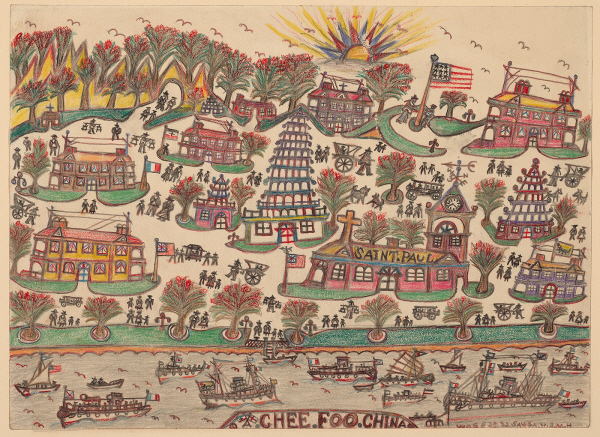 SAINT.PAUL
CHEE.FOO.CHINA